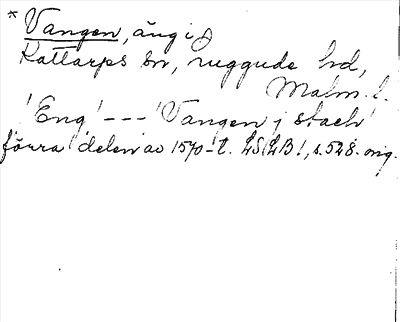 * Vangen, äng i
Kattarps sn, Luggude hd,
Malm. l.
'Eng' --- 'Vangen j stach'
förra delen av 1570-t. LSLB1, s. 528. orig.